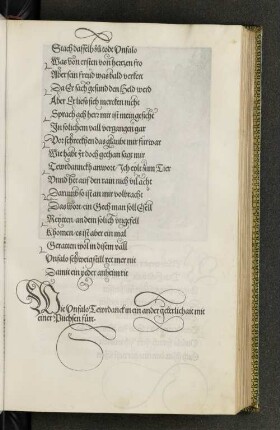 Stach dasselb zů tode Unfalo
Was von ersten von hertzen fro
Aber sein freud was bald verkert
Da Er sach gesund den Held werd
Aber Er ließ sich mercken nicht
Sprach ach herr mir ist mein gesicht
In solichem vall vergangen gar
Vor schrecken das glaubt mir fürwar
Wie habt Ir doch gethan sagt mir
Tewrdannckh anwort / Ich eylt zum Tier
Unnd het auf den rain nicht acht
Darumb so ist an mir volbracht
Das wort ein Gech man soll Esel
Reyten an dem solich ungefell
Khomen es ist aber ein mal
Geraten wol in disem vall
Unfalo schweig still ret mer nit
Damit ein yeder anheim rit
Wie Unfalo Tewrdanck in ein ander geferlichait mit
einer Puchsen fürt